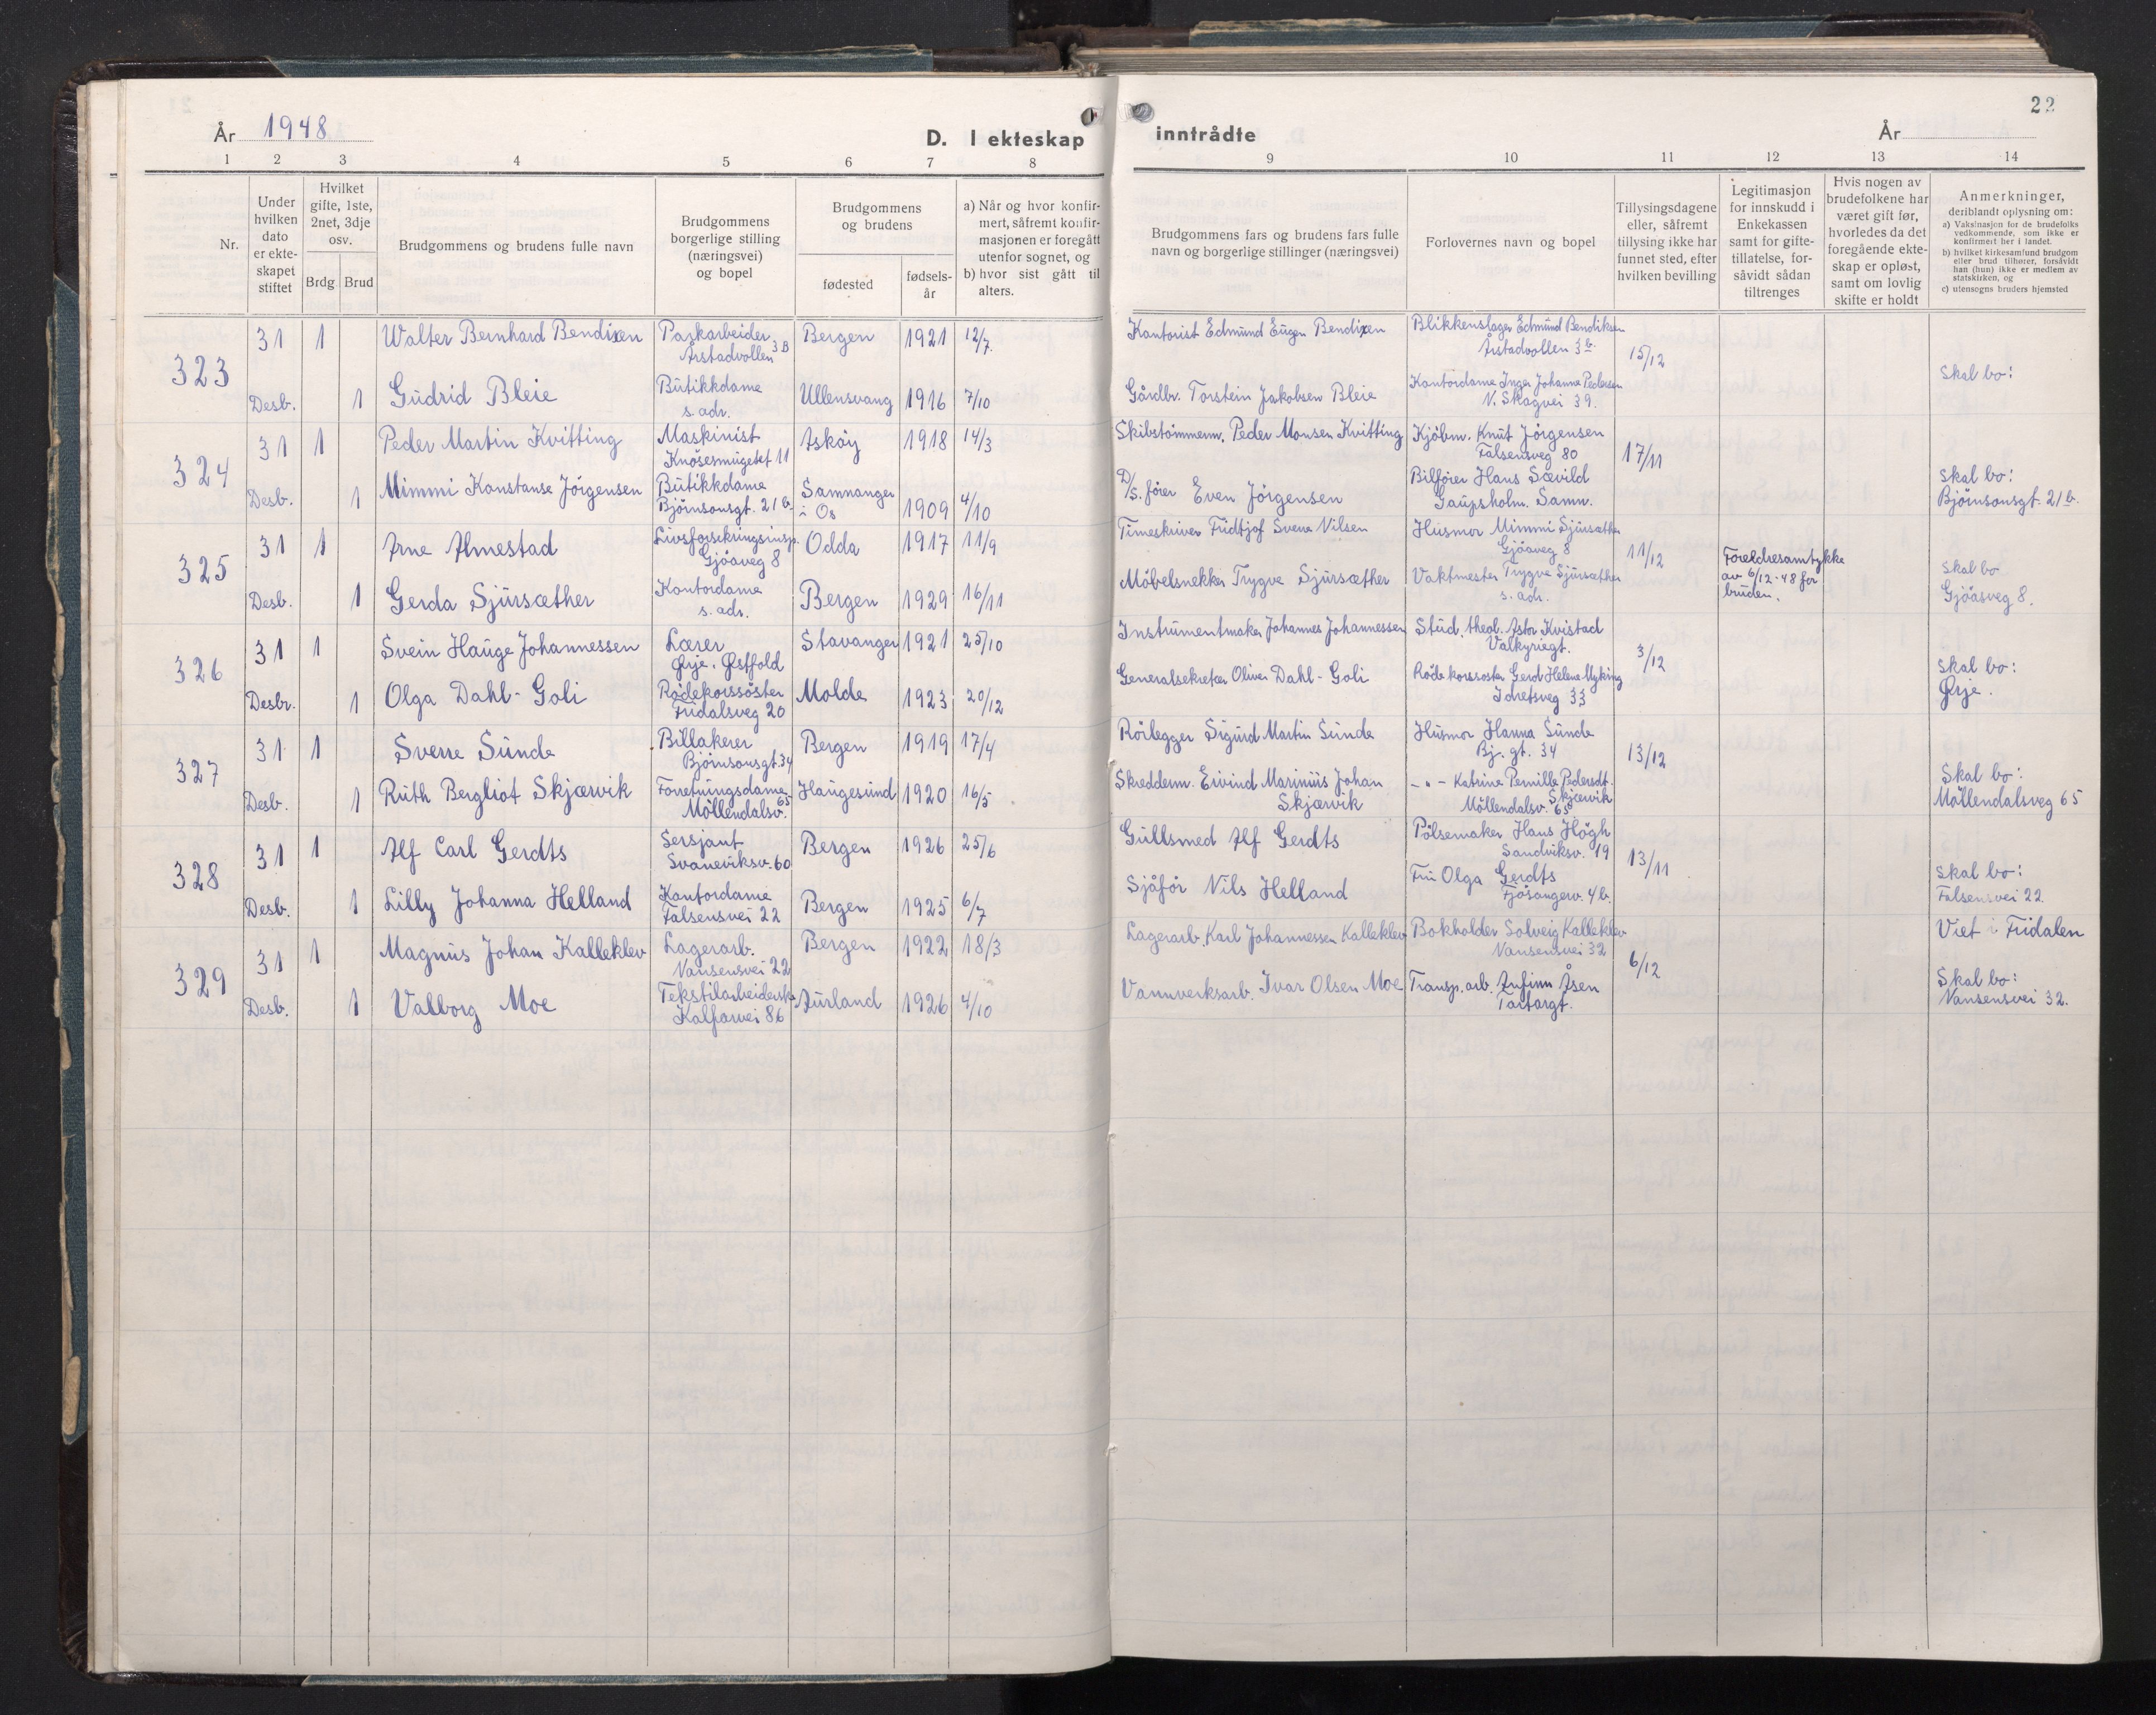 22
År 1948
D. I ekteskap inntrådte
År
1 2 3 4 5 6 7 8 9 10 11 12 13 14
Nr.
Under hvilken dato er ekteskapet stiftet
Hvilket gifte, 1ste, 2net, 3dje osv.
Brdg. Brud
Brudgommens og brudens fulle navn
Brudgommens borgerlige stilling (næringsvei) og bopel
Brudgommens og brudens
fødested
fødselsår
a) Når og hvor konfirmert, såfremt konfirmasjonen er foregått utenfor sognet, og
b) hvor sist gått til alters.
Brudgommens fars og brudens fars fulle navn og borgerlige stillinger (næringsvei)
Forlovernes navn og bopel
Tillysingsdagene eller, såfremt tillysing ikke har funnet sted, efter hvilken bevilling
Legitimasjon for innskudd i Enkekassen samt for giftetillatelse, forsåvidt sådan tiltrenges
Hvis nogen av brudefolkene har været gift før, hvorledes da det foregående ekteskap er opløst, samt om lovlig skifte er holdt
Anmerkninger, deriblandt oplysning om:
a) Vaksinasjon for de brudefolks vedkommende, som ikke er konfirmert her i landet.
b) hvilket kirkesamfund brudgom eller brud tilhører, forsåvidt han (hun) ikke er medlem av statskirken, og
c) utensogns bruders hjemsted
323
31 1 Walter Bernhard Bendixen Parkarbeider Årstadvollen 3B Bergen 1921 12/7. Kontorist Edmund Eugen Bendixen Blikkenslager Edmund Bendiksen Årstadvollen 3b. 15/12
Desb. 1 Gudrid Bleie Butikkdame s. adr. Ullensvang 1916 7/10 Gårdbr. Torstein Jakobsen Bleie Kontordame Inger Johanne Pedersen N. Skogvei 39. Skal bo:
324
31 1 Peder Martin Kvitting Maskinist Knøsesmuget 11 Askøy 1918 14/3 Skibstömmerm. Peder Monsen Kvitting Kjöbm. Knut Jörgensen Falsensveg 80 17/11
Desb. 1 Mimmi Konstanse Jörgensen Butikkdame Bjørnsonsgt. 21b. Samnanger i Os 1909 4/10 D/S. förer Even Jörgensen Bilförer Hans Sævild Gaupsholm. Samn. Skal bo: Bjørnsonsgt. 21b.
325
31 1 Arne Almestad Livsforsikringsinsp. Gjöaveg 8 Odda 1917 11/9 Timeskriver Fridtjof Sverre Nilsen Husmor Mimmi Sjursæther Gjöaveg 8 11/12 Foreldresamtykke av 6/12-48 for bruden.
Desb. 1 Gerda Sjursæther Kontordame s. adr. Bergen 1929 16/11 Möbelsnekker Trygve Sjursæther Vaktmester Trygve Sjursæther s. adr. Skal bo Gjöasveg 8.
326
31 1 Svein Hauge Johannessen Lærer Ørje. Østfold Stavanger 1921 25/10 Instrumentmaker Johannes Johannessen Stud. theol. Astor Kvistad Valkyriegt. 3/12
Desbr. 1 Olga Dahl-Goli Rødekorssöster Fridalsveg 20 Molde 1923 20/12 Generalsekretær Oliver Dahl-Goli Röde korssöster Gerd Helene Myking Idretsveg 33 Skal bo: Ørje.
327
31 1 Sverre Sunde Billakerer Bjørnsonsgt. 34 Bergen 1919 17/4 Rörlegger Sigurd Martin Sunde Husmor Hanna Sunde Bj. gt. 34 13/12
Desb. 1 Ruth Bergliot Skjærvik Forretningsdame Möllendalsv. 65 Haugesund 1920 16/5 Skredderm. Eivind Marinius Johan Skjærvik - " - Katrine Pernille Pedersdt. Skjærvik Möllendalsv. 65 Skal bo: Möllendalsveg 65
328
31 1 Alf Carl Gerdts Sersjant Svaneviksv. 60 Bergen 1926 25/6 Gullsmed Alf Gerdts Pölsemaker Hans Högh Sandviksv. 19 13/11
Desb. 1 Lilly Johanna Helland Kontordame Falsensvei 22 Bergen 1925 6/7 Sjåför Nils Helland Fru Olga Gerdts Fjösangerv. 4b. Skal bo: Falsensvei 22.
329
31 1 Magnus Johan Kalleklev Lagerarb. Nansensvei 22 Bergen 1922 18/3 Lagerarb. Karl Johannessen Kalleklev Bokholder Solveig Kalleklev Nansensvei 32 6/12 Viet i Fridalen
Desb. 1 Valborg Moe Tekstilarbeiderske Kalfarvei 86 Aurland 1926 4/10 Vannverksarb. Ivar Olsen Moe Transp. arb. Anfinn Åsen Tartargt. Skal bo: Nansensvei 32.